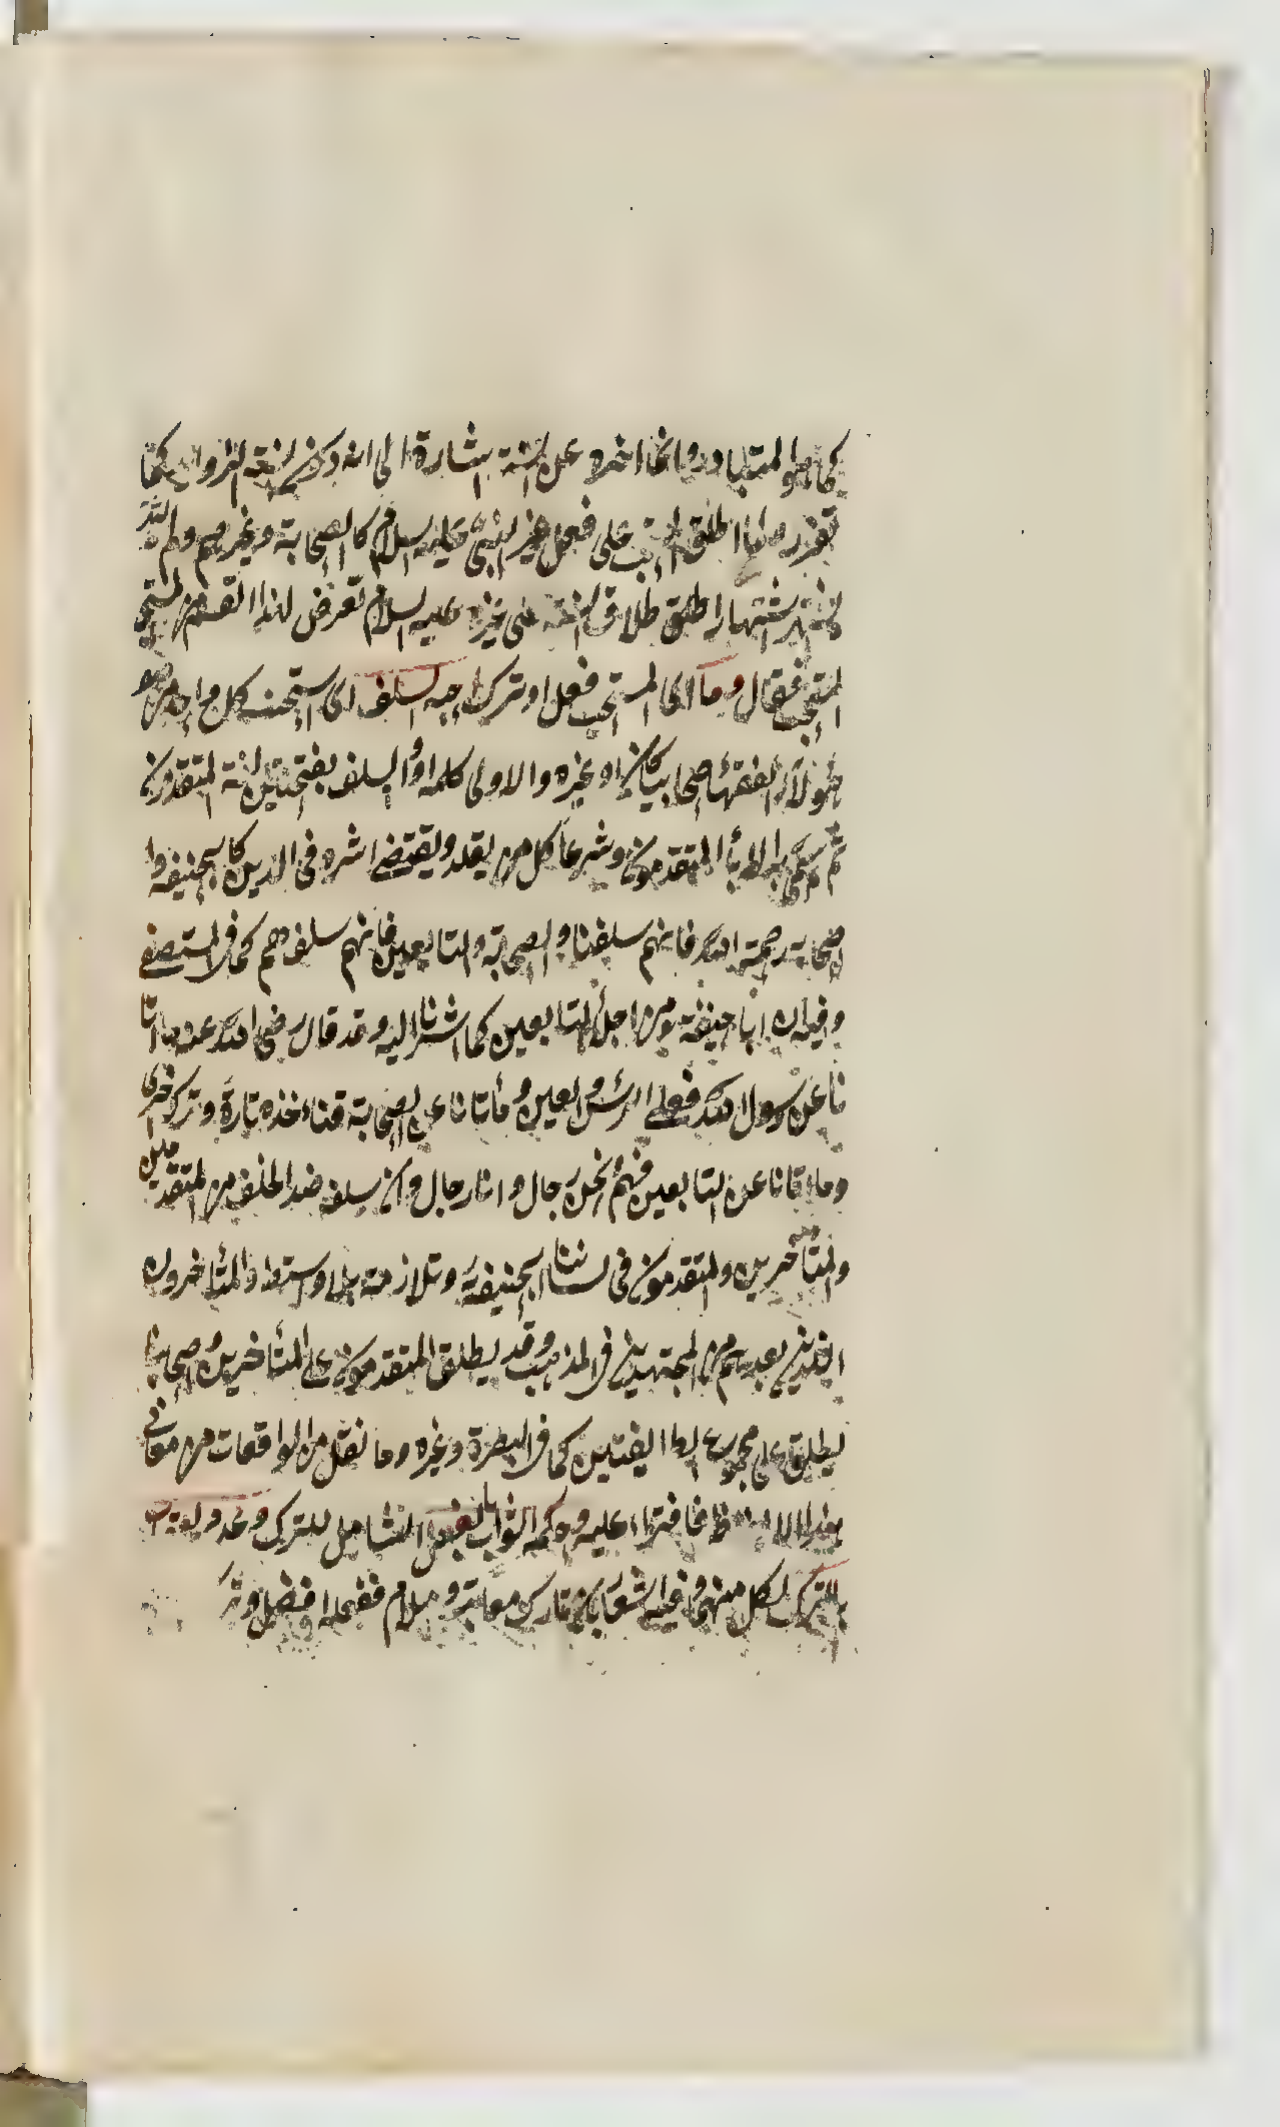 كما هو المتبادر وانما اخره عن السنة اشارة الى انه دون السنة الزوائد كما
تقرر ولما اطلق السنة على فعل غير النبى عليه السلام كالصحابة وغيرهم ولم
يشتهر اشتهار اطلاق السنة على غيره عليه السلام تعرض لهذا القسم من المستحب
فقال وما اى المستحب فعل او ترك احبه السلف اى استحسنه كل واحد من
هؤلاء الفقهاء صحابيا كان او غيره والاولى كلمة او والسلف بفتحتين لغة المتقدمون
ثم سمى به الاباء المتقدمون وشرعا كل من يقلد ويقتضى اثره فى الدين كابيحنيفة و
اصحابه رحمة الله فانهم سلفنا والصحابة والتابعين فانهم سلفهم كما فى المستصفى
وفيه ان ابا حنيفة من اجل التابعين كما اشرنا اليه وقد قال رضى الله عنه ما اتا
نا عن رسول الله فعلى الرأس والعين وما اتانا عن الصحابة فنأخذه تارة وترك اخرى
وما اتانا عن التابعين فهم نحن رجال وانا رجال وان سلف ضد الخلف من المتقدمين
والمتأخرين والمتقدمون فى لساننا ابيحنيفة وتلامذته بلا واسطة والمتأخرون
الذين بعدهم من المجتهدين فى المذهب وقد يطلق المتقدمون على المتأخرين واصحابنا
يطلق على مجموع الطائفتين كما فى التبصرة وغيره وما نقل من الواقعات من معانى
هذه الالفاظ فافتراء عليه وحكمه الثواب بالفعل الشامل للترك وعدم العتاب
بالترك لكل منهما وفيه اشعار بان تارك معاتب وملام ففعله افضل وتر